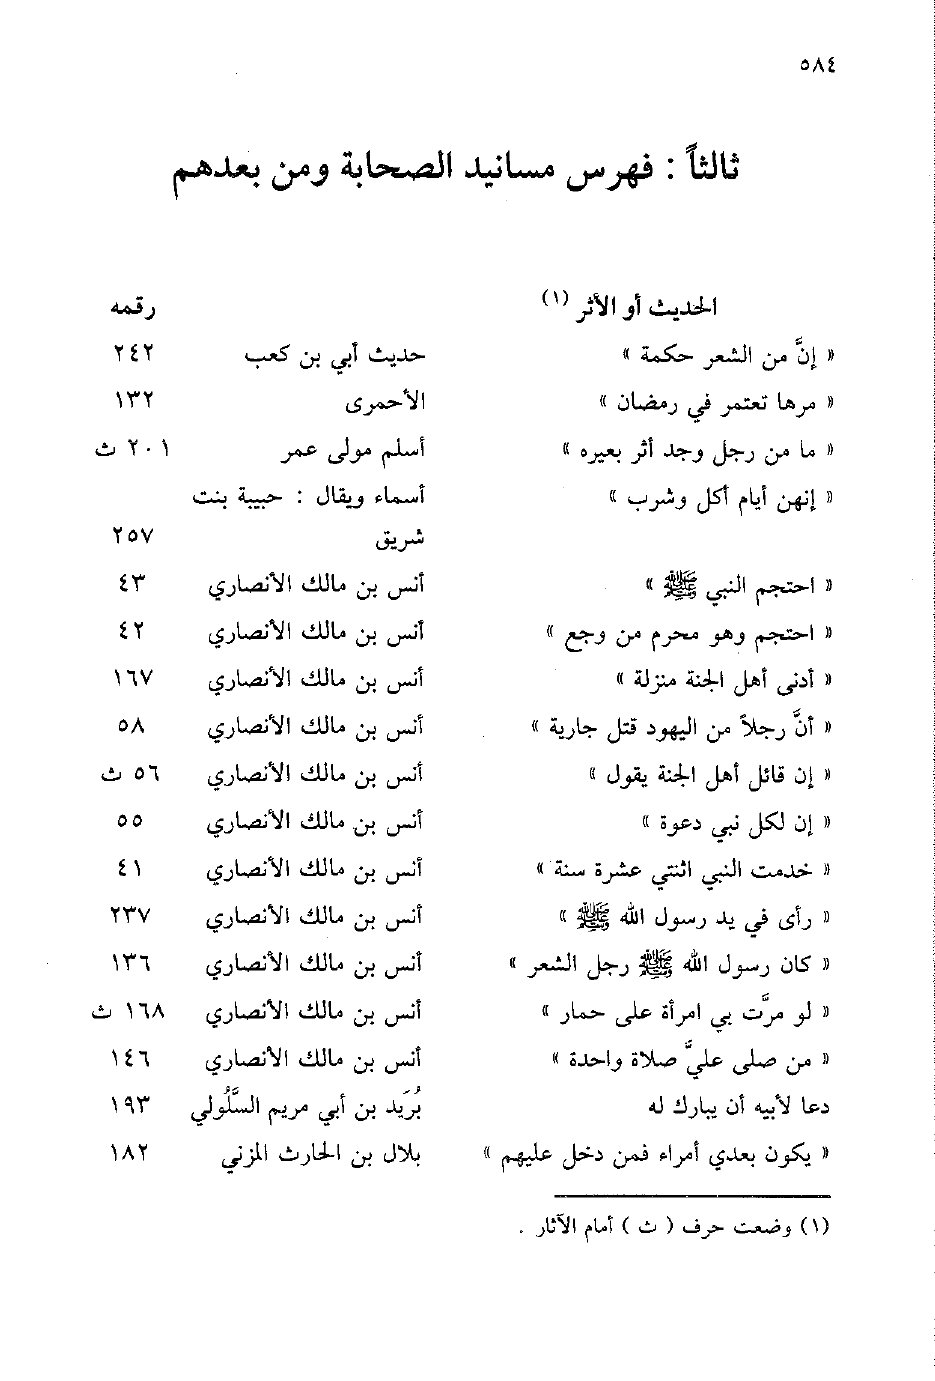 ٥٨٤
ثالثاً : فهرس مسانيد الصحابة ومن بعدهم
الحديث أو الأثر (١) رقمه
« إنَّ من الشعر حكمة » حديث أبي بن كعب ٢٤٢
« مرها تعتمر في رمضان » الأحمرى ١٣٢
« ما من رجل وجد أثر بعيره » أسلم مولى عمر ٢٠١ ث
« إنهن أيام أكل وشرب » أسماء ويقال : حبيبة بنت
شريق ٢٥٧
« احتجم النبي ﷺ » أنس بن مالك الأنصاري ٤٣
« احتجم وهو محرم من وجع » أنس بن مالك الأنصاري ٤٢
« أدنى أهل الجنة منزلة » أنس بن مالك الأنصاري ١٦٧
« أنَّ رجلاً من اليهود قتل جارية » أنس بن مالك الأنصاري ٥٨
« إن قائل أهل الجنة يقول » أنس بن مالك الأنصاري ٥٦ ث
« إن لكل نبي دعوة » أنس بن مالك الأنصاري ٥٥
« خدمت النبي اثنتي عشرة سنة » أنس بن مالك الأنصاري ٤١
« رأى في يد رسول الله ﷺ » أنس بن مالك الأنصاري ٢٣٧
« كان رسول الله ﷺ رجل الشعر » أنس بن مالك الأنصاري ١٣٦
« لو مرَّت بي امرأة على حمار » أنس بن مالك الأنصاري ١٦٨ ث
« من صلى عليَّ صلاة واحدة » أنس بن مالك الأنصاري ١٤٦
دعا لأبيه أن يبارك له بُرَيد بن أبي مريم السَّلُولي ١٩٣
« يكون بعدي أمراء فمن دخل عليهم » بلال بن الحارث المزني ١٨٢
(١) وضعت حرف ( ث ) أمام الآثار .